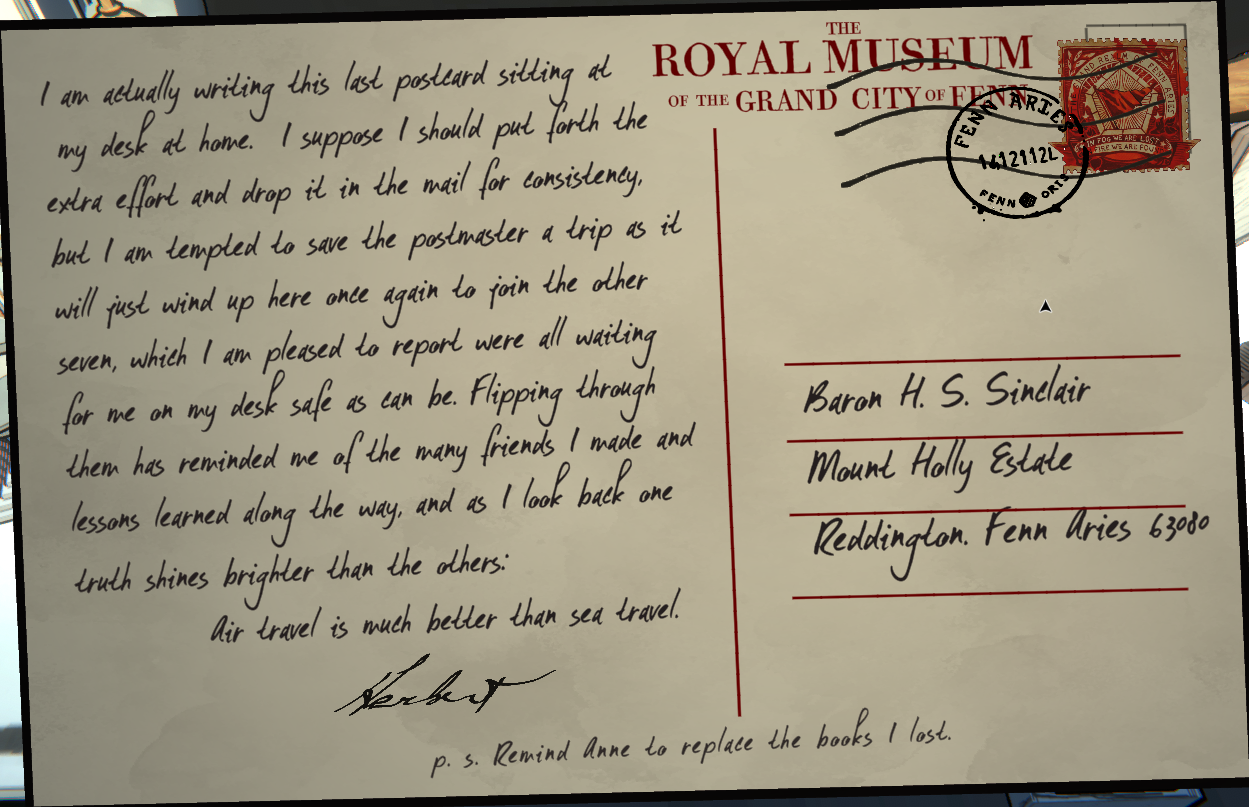 I am actually writing this last postcard sitting at
my desk at home. I suppose I should put forth the
extra effort and drop it in the mail for consistency,
but I am tempted to save the postmaster a trip as it
will just wind up here once again to join the other
seven, which I am pleased to report were all waiting
for me on my desk safe as can be. Flipping through
them has reminded me of the many friends I made and
lessons learned along the way, and as I look back one
truth shines brighter than the others:
Air travel is much better than sea travel.
Herbert
p. s. Remind Anne to replace the books I lost.
THE
ROYAL MUSEUM
OF THE GRAND CITY OF FENN
FENN ARIES
FENN ORIS
IN FOG WE ARE LOST
Baron H. S. Sinclair
Mount Holly Estate
Reddington. Fenn Aries 63080